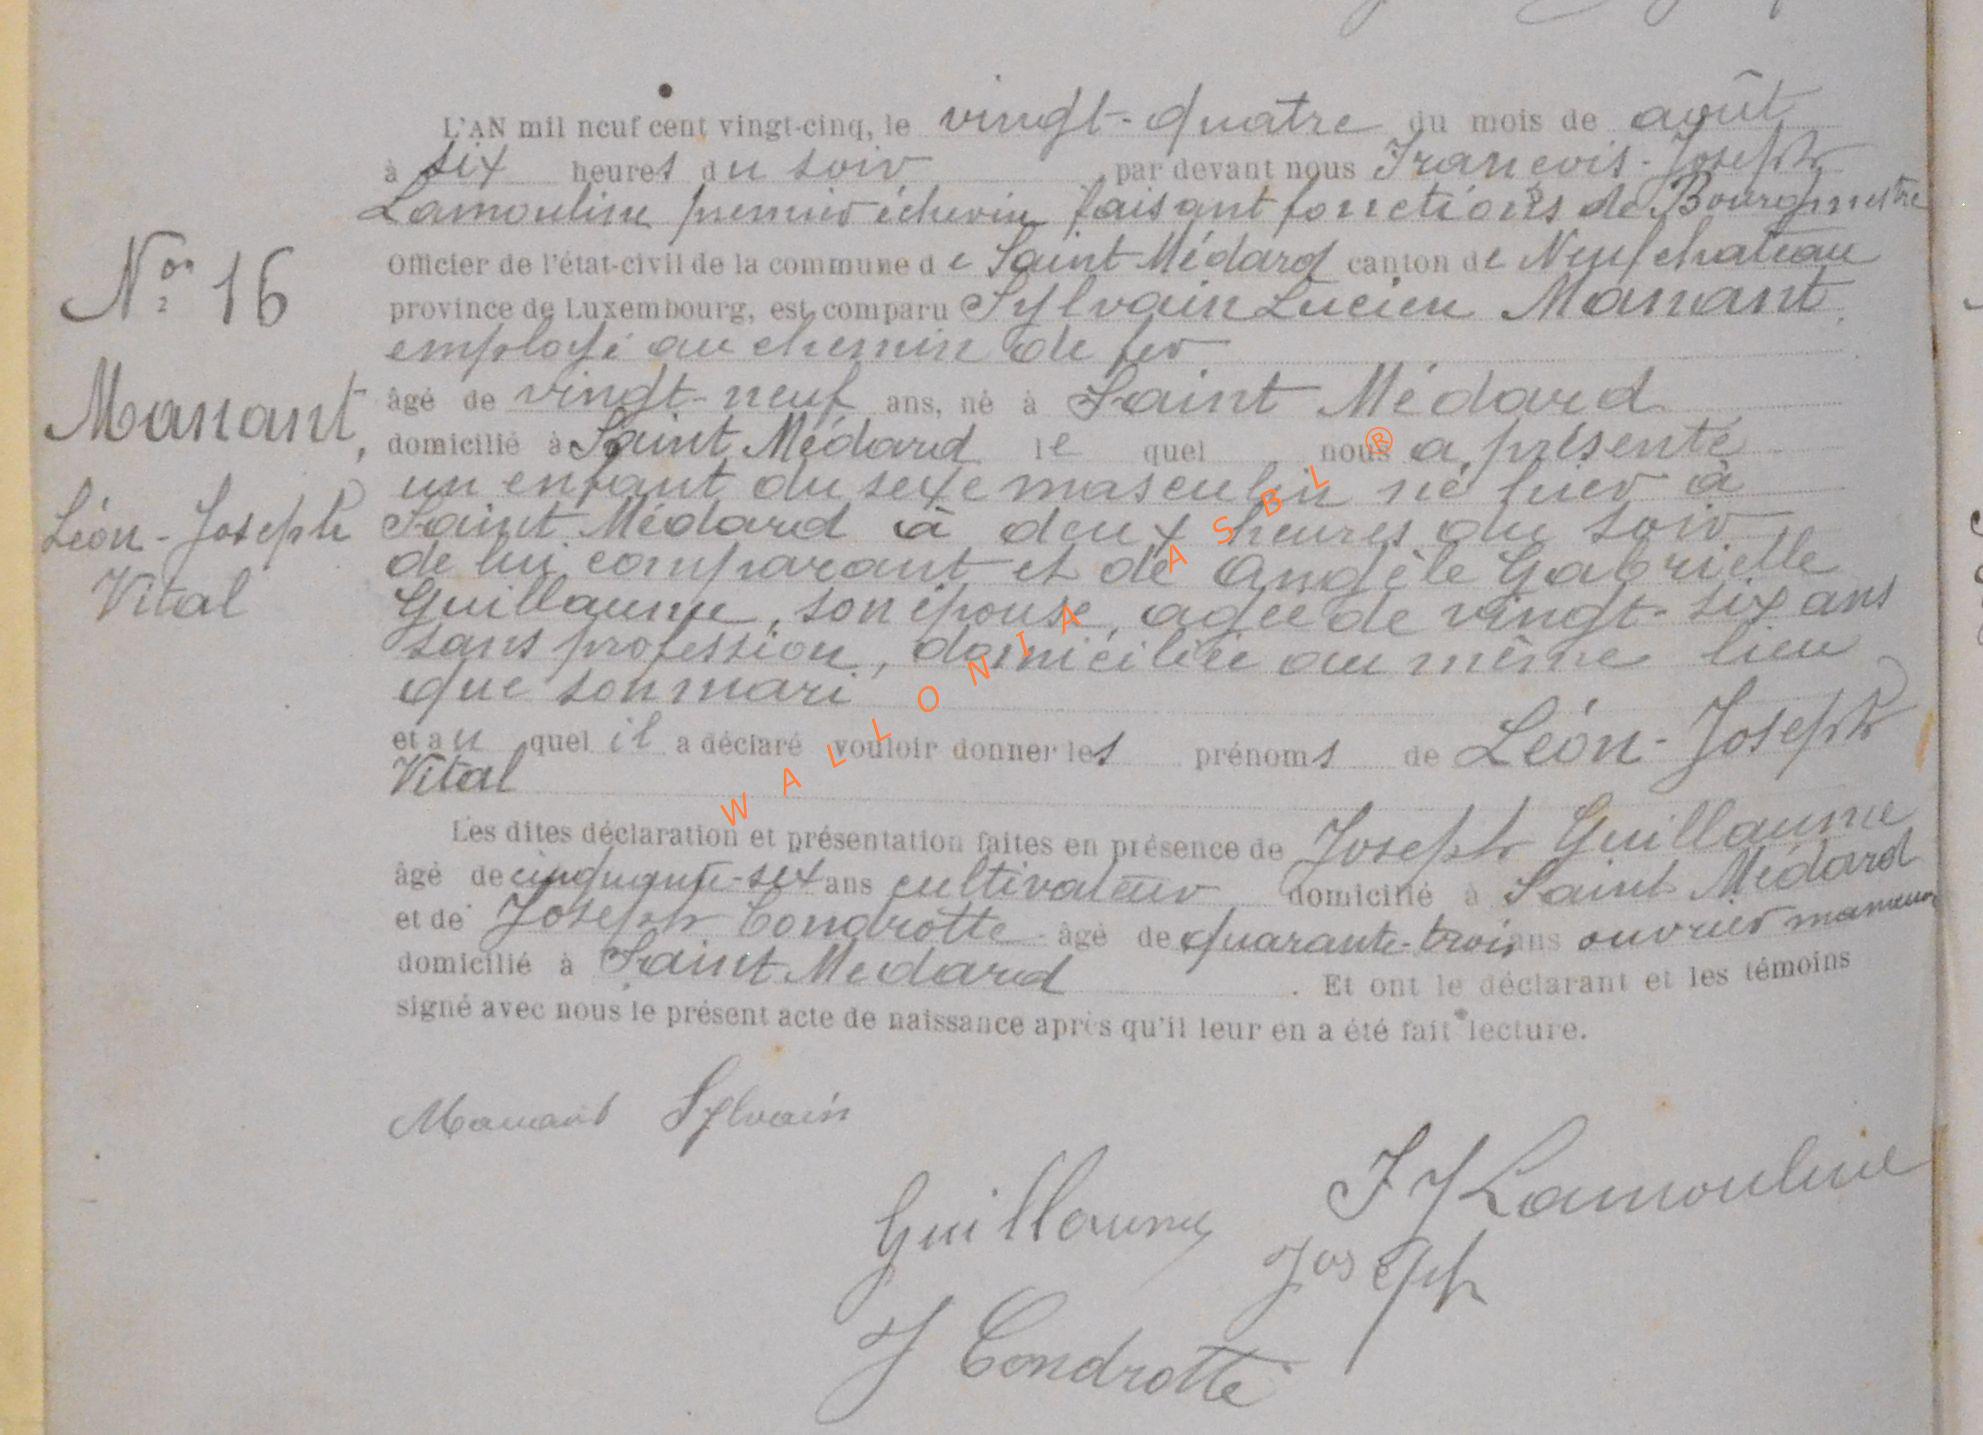 L'AN mil neuf cent vingt-cinq, le vingt-quatre du mois de août
à six heures du soir par devant nous François-Joseph
Lamouline premier échevin faisant fonctions de Bourgmestre
Officier de l'état-civil de la commune de Saint-Médard canton de Neufchateau
province de Luxembourg, est comparu Sylvain Lucien Manant
employé au chemin de fer
âgé de vingt-neuf ans, né à Saint Médard
domicilié à Saint Médard lequel nous a présenté
un enfant du sexe masculin né hier à
Saint Médard à deux heures du soir
de lui comparant et de Angèle Gabrielle
Guillaume, son épouse, agée de vingt-six ans
sans profession, domiciliée au même lieu
que son mari
et au quel il a déclaré vouloir donner les prénoms de Léon-Joseph
Vital
Les dites déclaration et présentation faites en présence de Joseph Guillaume
âgé de cinquante-six ans cultivateur domicilié à Saint Médard
et de Joseph Condrotte âgé de quarante-trois ans ouvrier
domicilié à Saint Médard . Et ont le déclarant et les témoins
signé avec nous le présent acte de naissance après qu'il leur en a été fait lecture.
Nº 16
Manant,
Léon-Joseph
Vital
Manant Sylvain
F J Lamouline
Guillaume Joseph
J Condrotte
WALLONIA ASBL ®